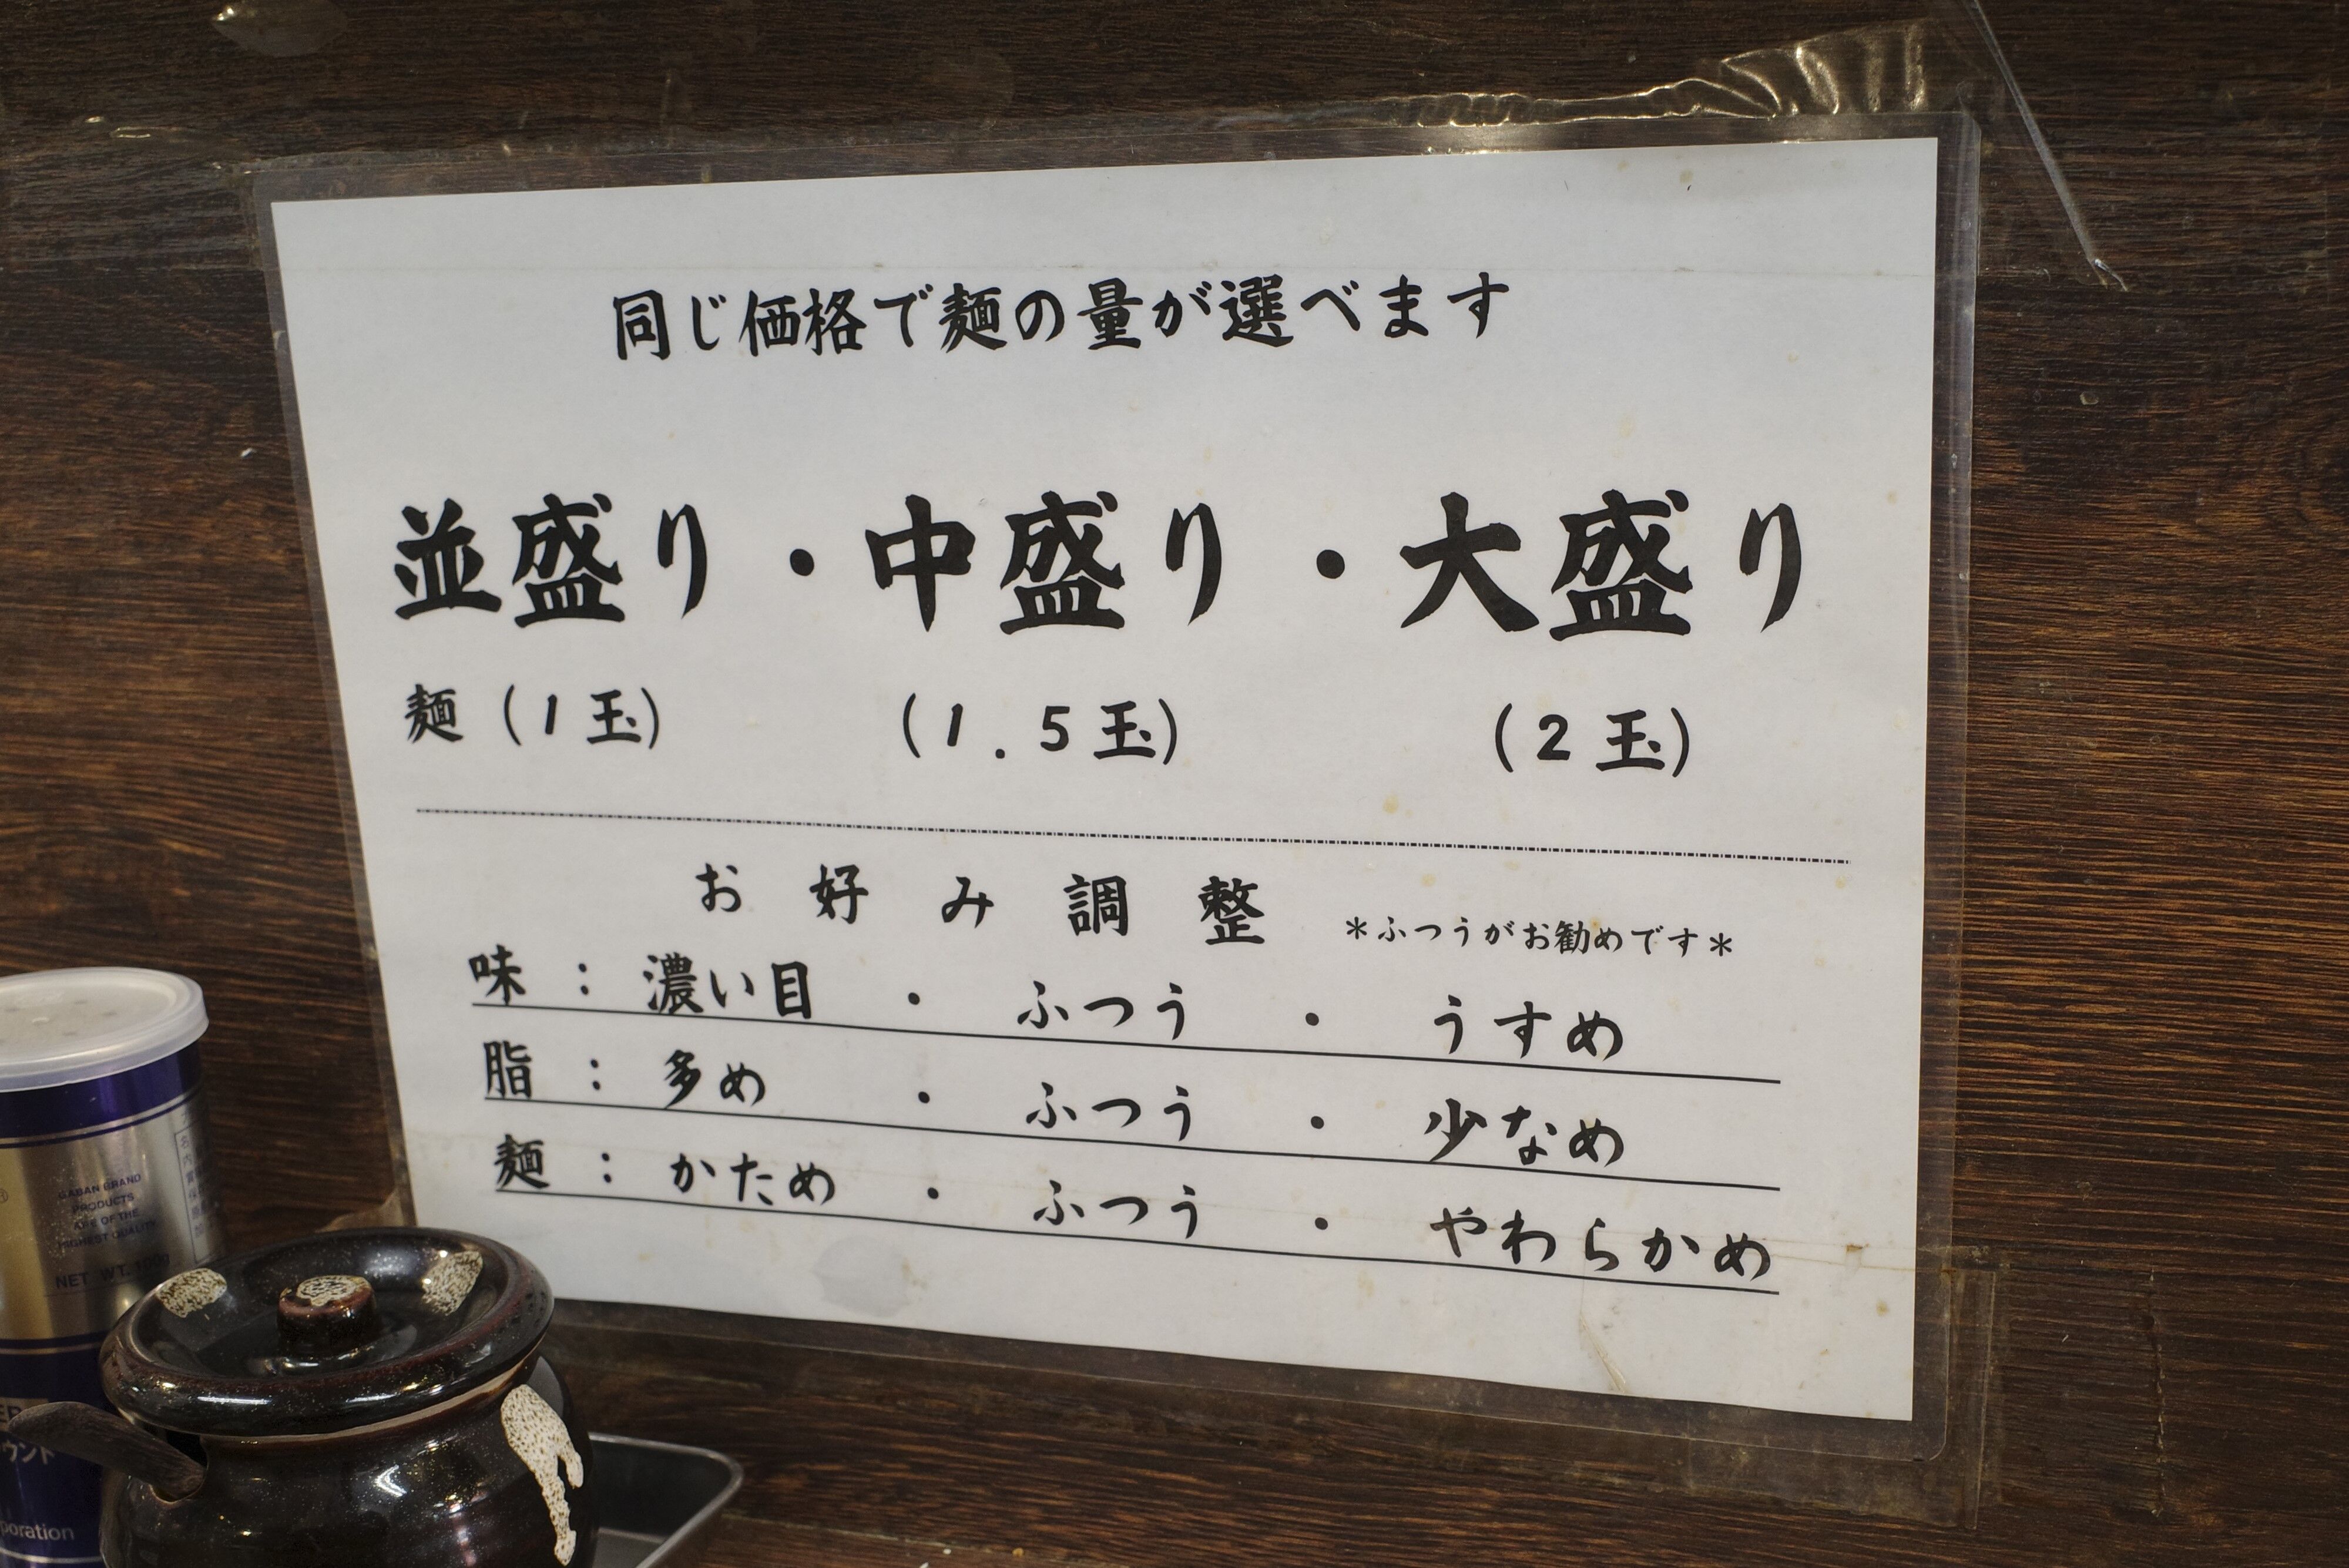 同じ価格で麺の量が選べます
並盛り・中盛り・大盛り
麺（1玉） （1.5玉） （2玉）
お好み調整 *ふつうがお勧めです*
味：濃い目 ・ ふつう ・ うすめ
脂：多め ・ ふつう ・ 少なめ
麺：かため ・ ふつう ・ やわらかめ
GABAN BRAND
PRODUCTS
ARE OF THE
HIGHEST QUALITY
NET WT. 100g
ウント
poration